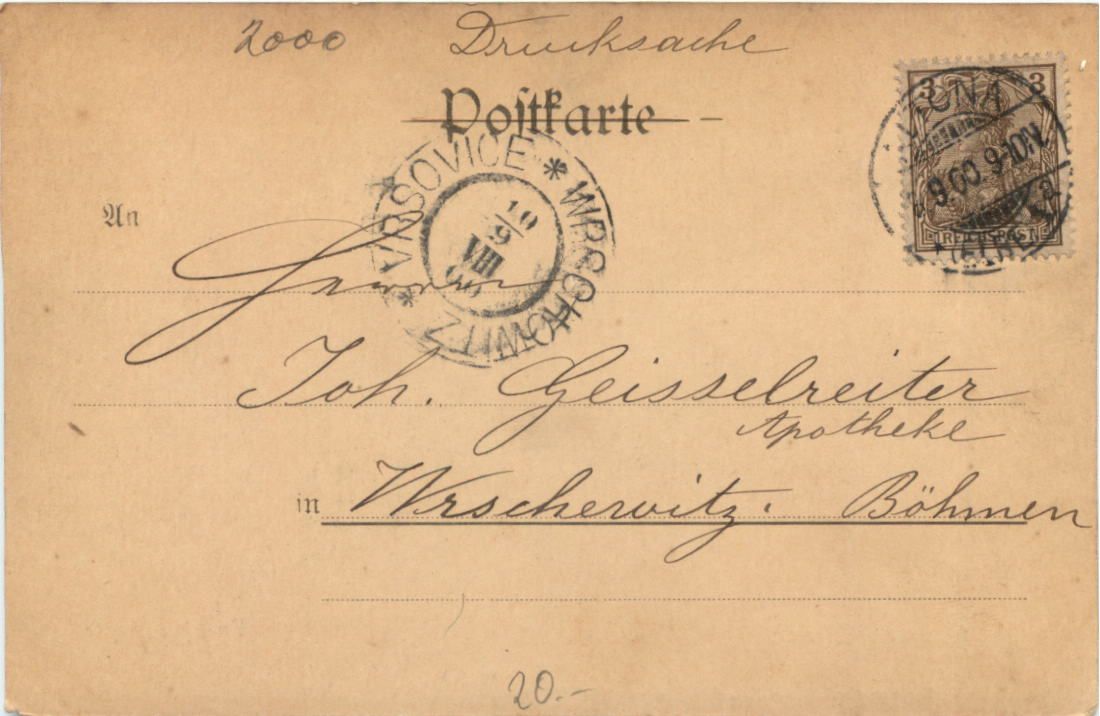 2000 Drucksache
Postkarte
3 3
REICHSPOST
9.00. 9-10N.
VRSOVICE * WRSCHOWITZ *
10
9
VIII
00
An
Herrn
Joh. Geisselreiter
Apotheke
in Wrschewitz. Böhmen
20.-